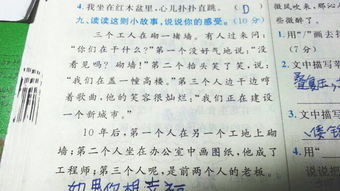 4.我坐在红木盆里,心儿扑扑直跳。 (D)
九、读读这则小故事,说说你的感受。(10分)
三个工人在砌一堵墙。有人过来问:
“你们在干什么?”第一个没好气地说:“没
看见吗?砌墙!”第二个抬头笑了笑,说:
“我们在盖一幢高楼。”第三个人边干边哼
着歌曲,他的笑容很灿烂:“我们正在建设
一个新城市。”
10年后,第一个人在另一个工地上砌
墙;第二个人坐在办公室中画图纸,他成了
工程师;第三个人呢,是前两个人的老板。
如果你想幸福
微风吹来,那沁
些微醉了。
1.用“/”画去括
(7分)
2.文中描写草
3.文中描写
4.用“
说说把